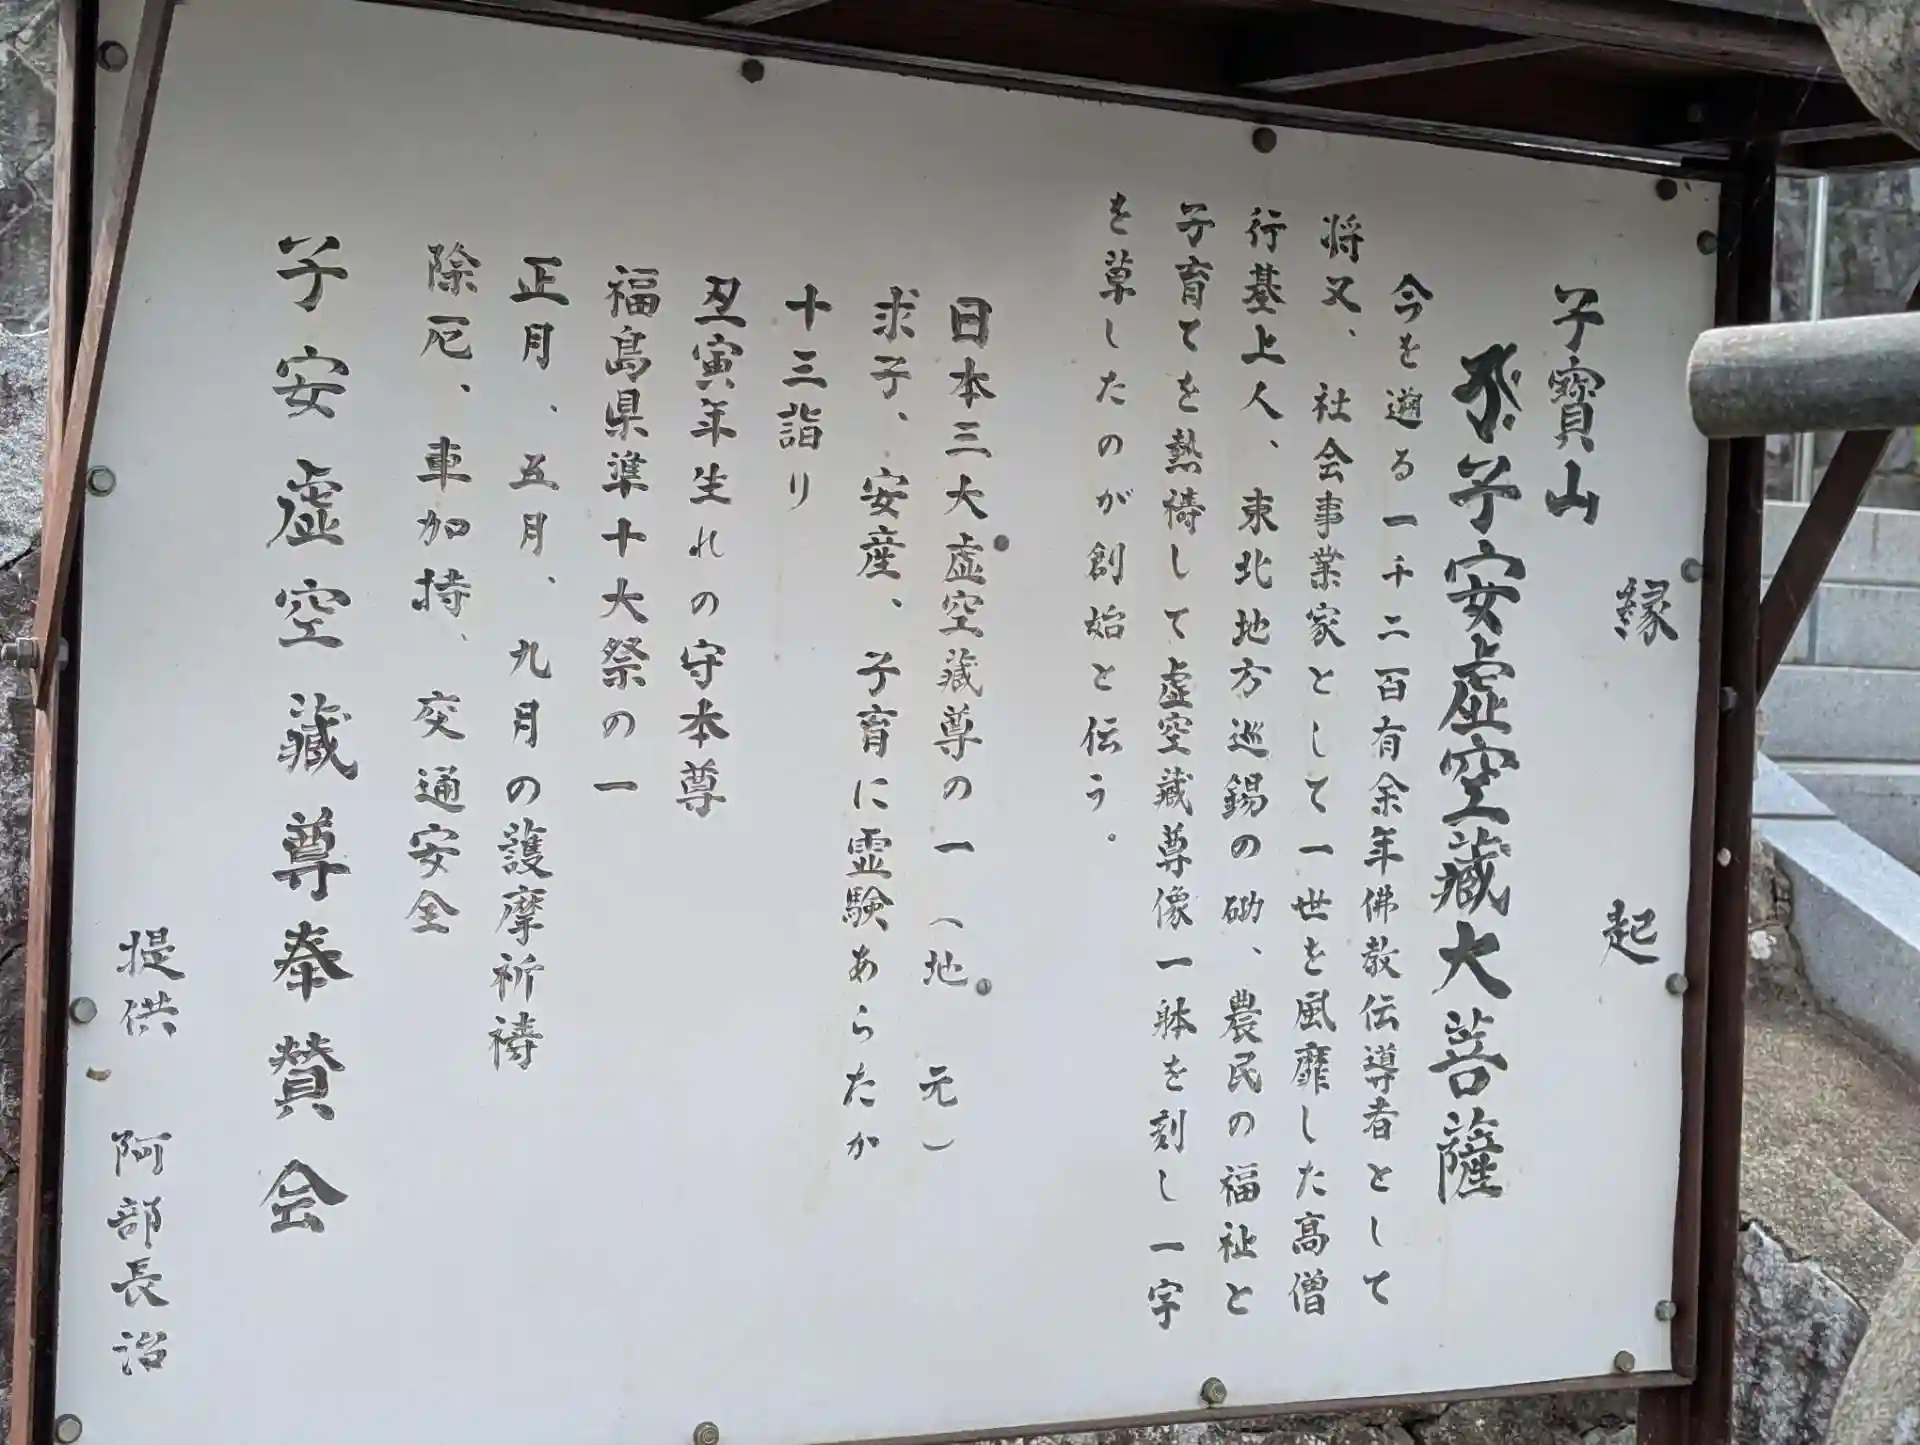 縁起
子寶山
子安虚空藏大菩薩
今を遡る一千二百有余年佛教伝導者として
将又、社会事業家として一世を風靡した高僧
行基上人、東北地方巡錫の砌、農民の福祉と
子育てを熱祷して虚空藏尊像一躰を刻し一宇
を草したのが創始と伝う。
日本三大虚空藏尊の一（地元）
求子、安産、子育に霊験あらたか
十三詣り
丑寅年生れの守本尊
福島県準十大祭の一
正月、五月、九月の護摩祈祷
除厄、車加持、交通安全
子安虚空藏尊奉賛会
提供 阿部長治